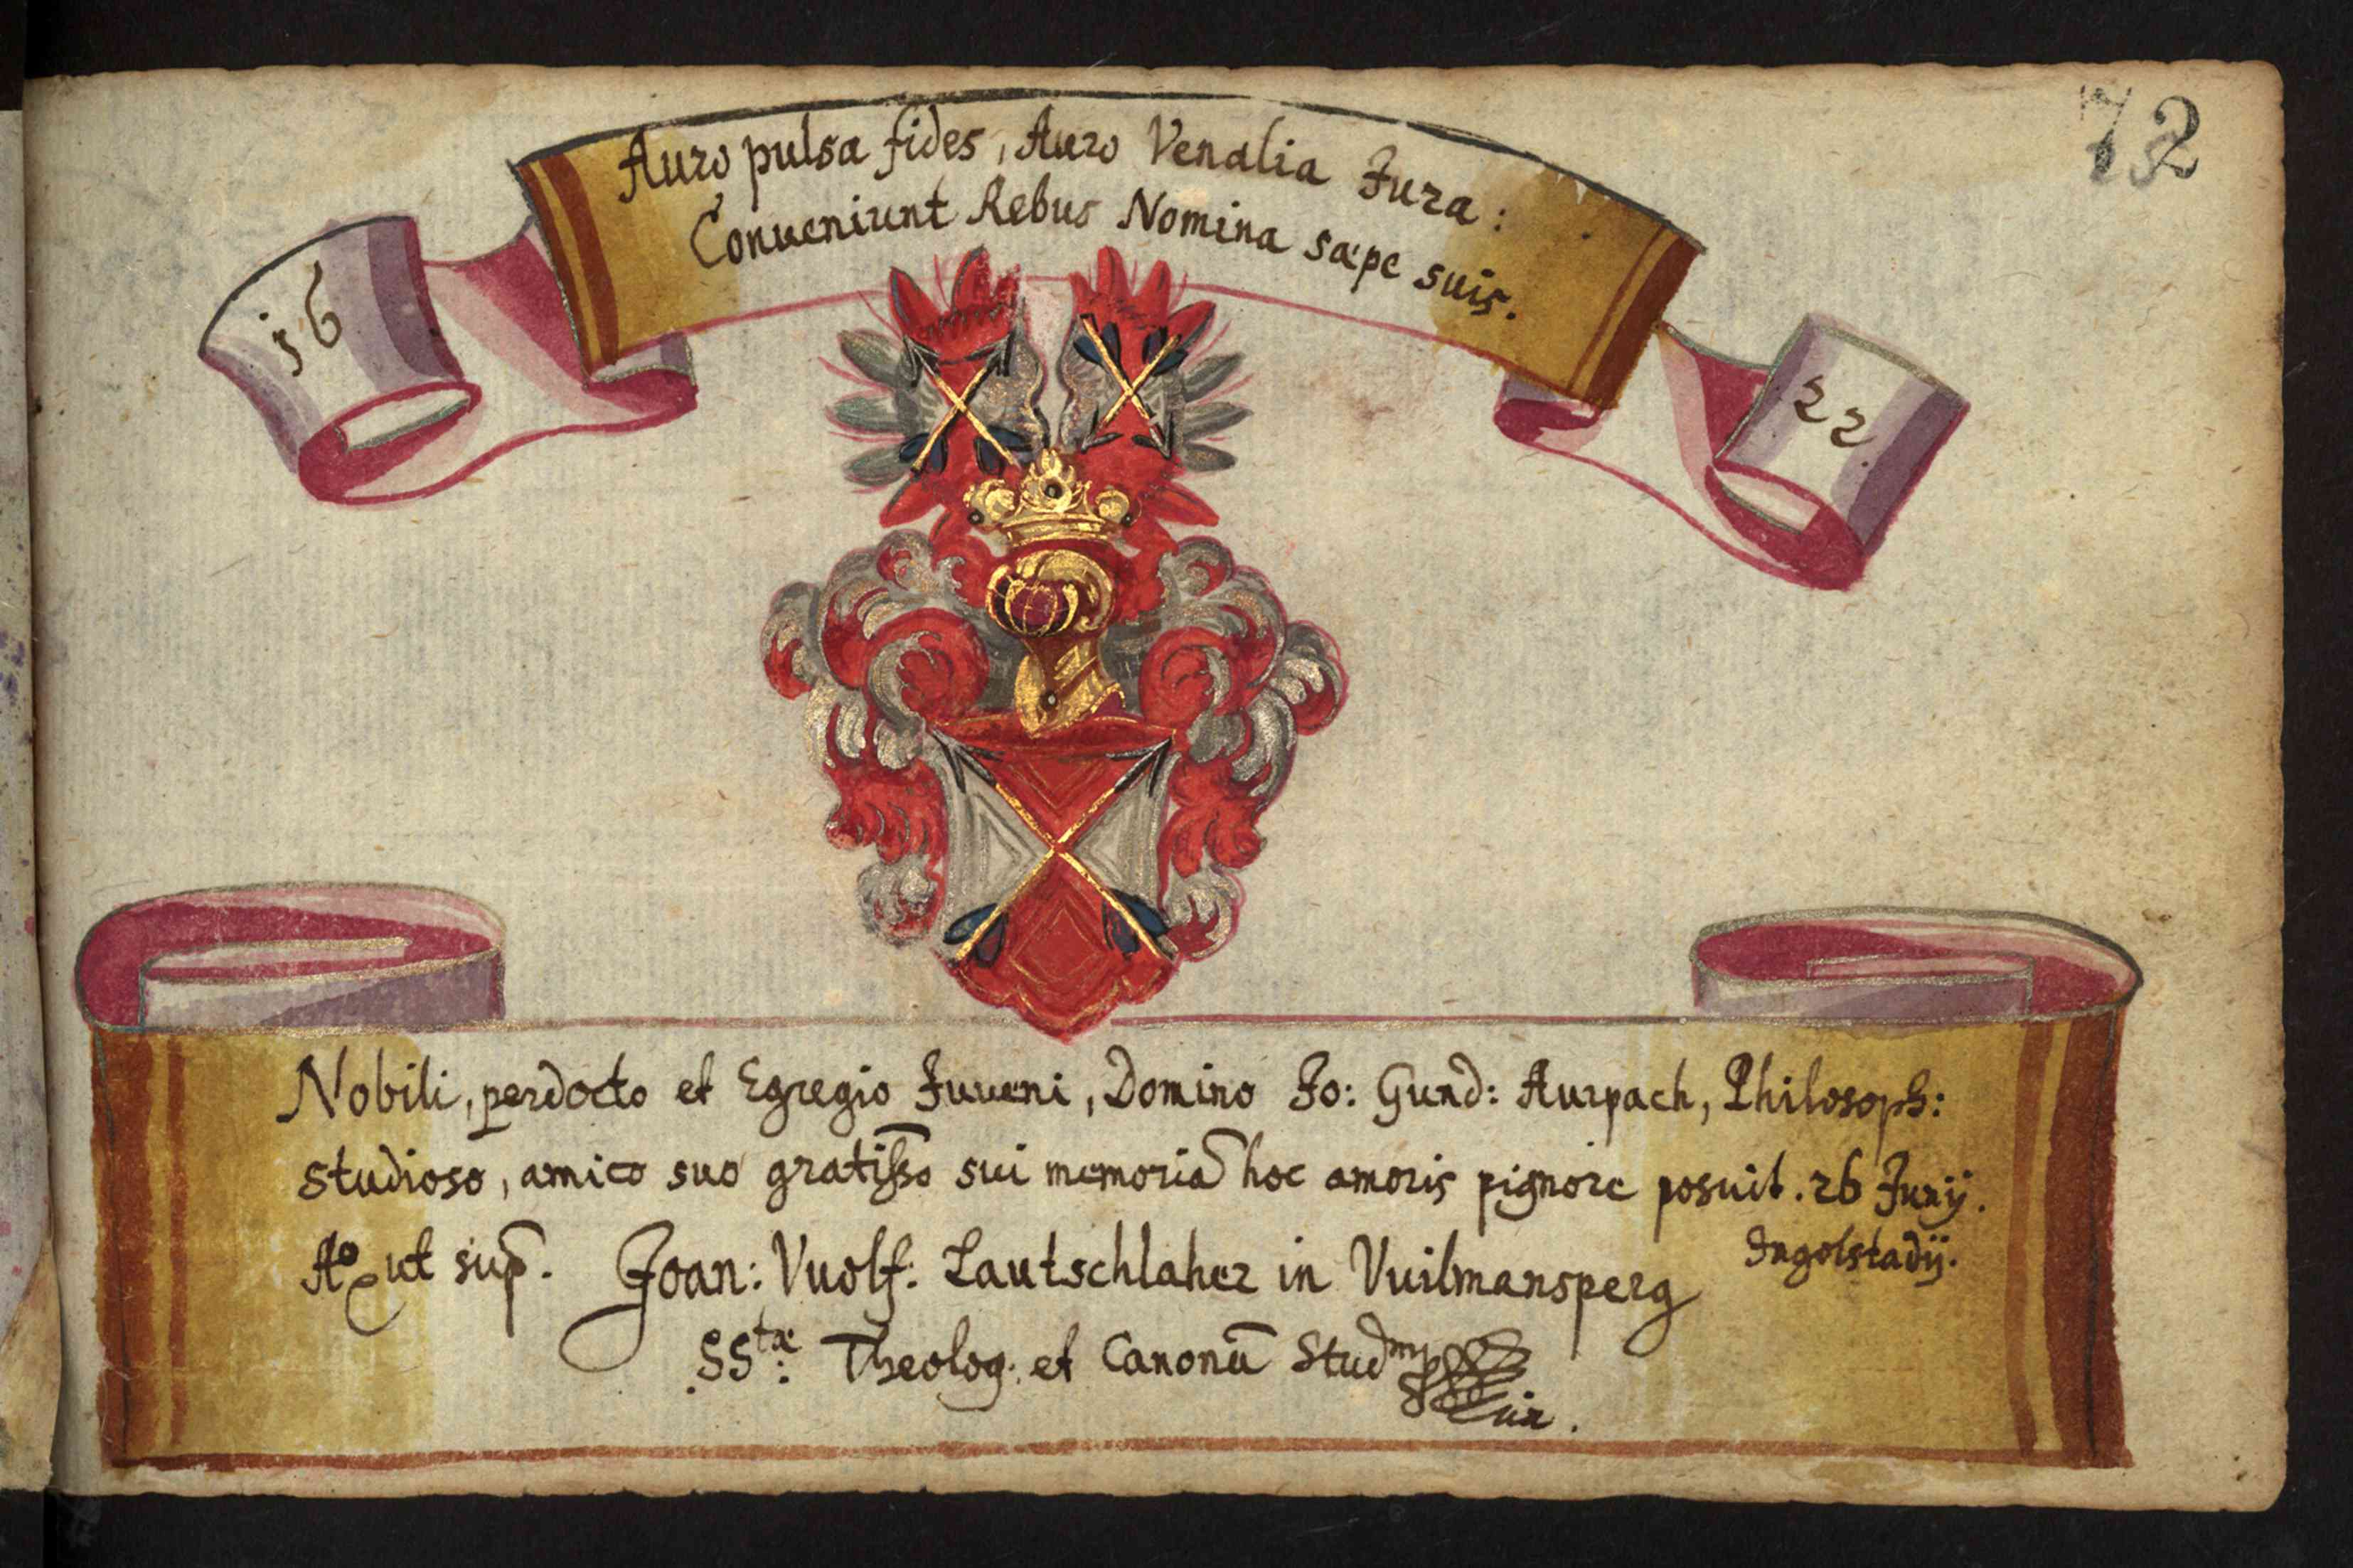 72
Auro pulsa fides, Auro Venalia Jura:
Conueniunt Rebus Nomina sæpe suis.
16
22.
Nobili, perdocto et Egregio Juueni, Domino Jo: Gund: Aurpach, Philosoph:
studioso, amico suo gratisso sui memoriā hoc amoris pignore posuit. 26 Junij.
Ao ut sup. Joan: Vuolf: Lautschlaher in Vuilmansperg
Ingolstadij.
SStæ: Theolog: et Canonū Stud